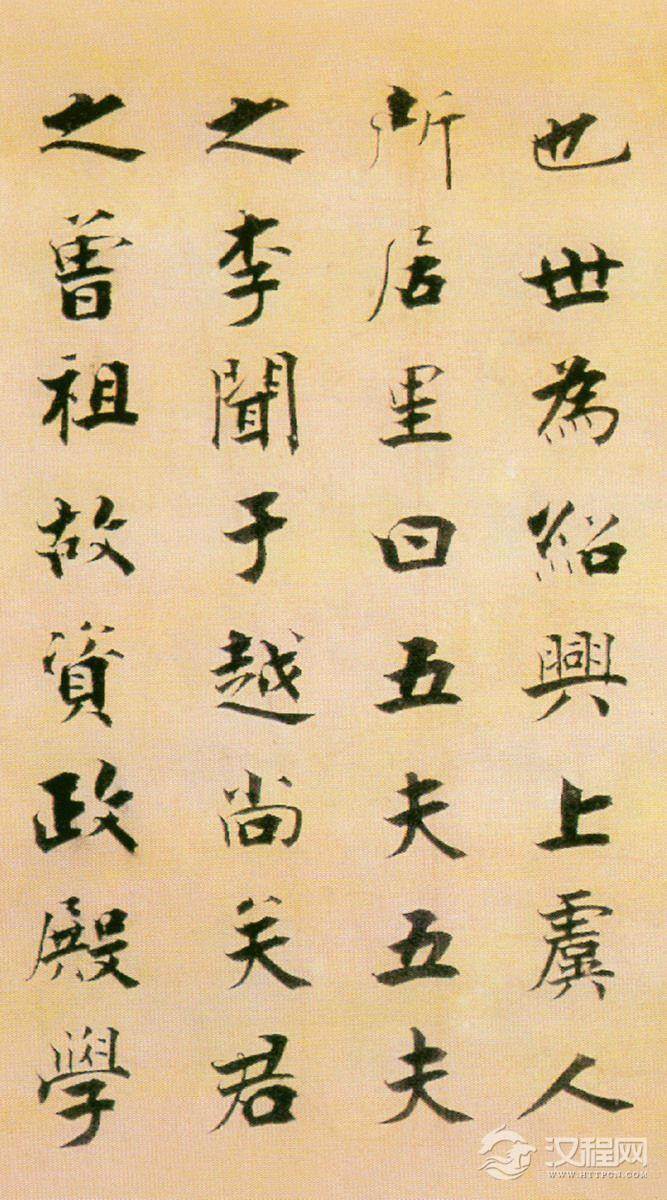 也世為紹興上虞人
所居里曰五夫五夫
之李聞于越尚矣君
之曾祖故資政殿學
汉程网
WWW.HTTPCN.COM